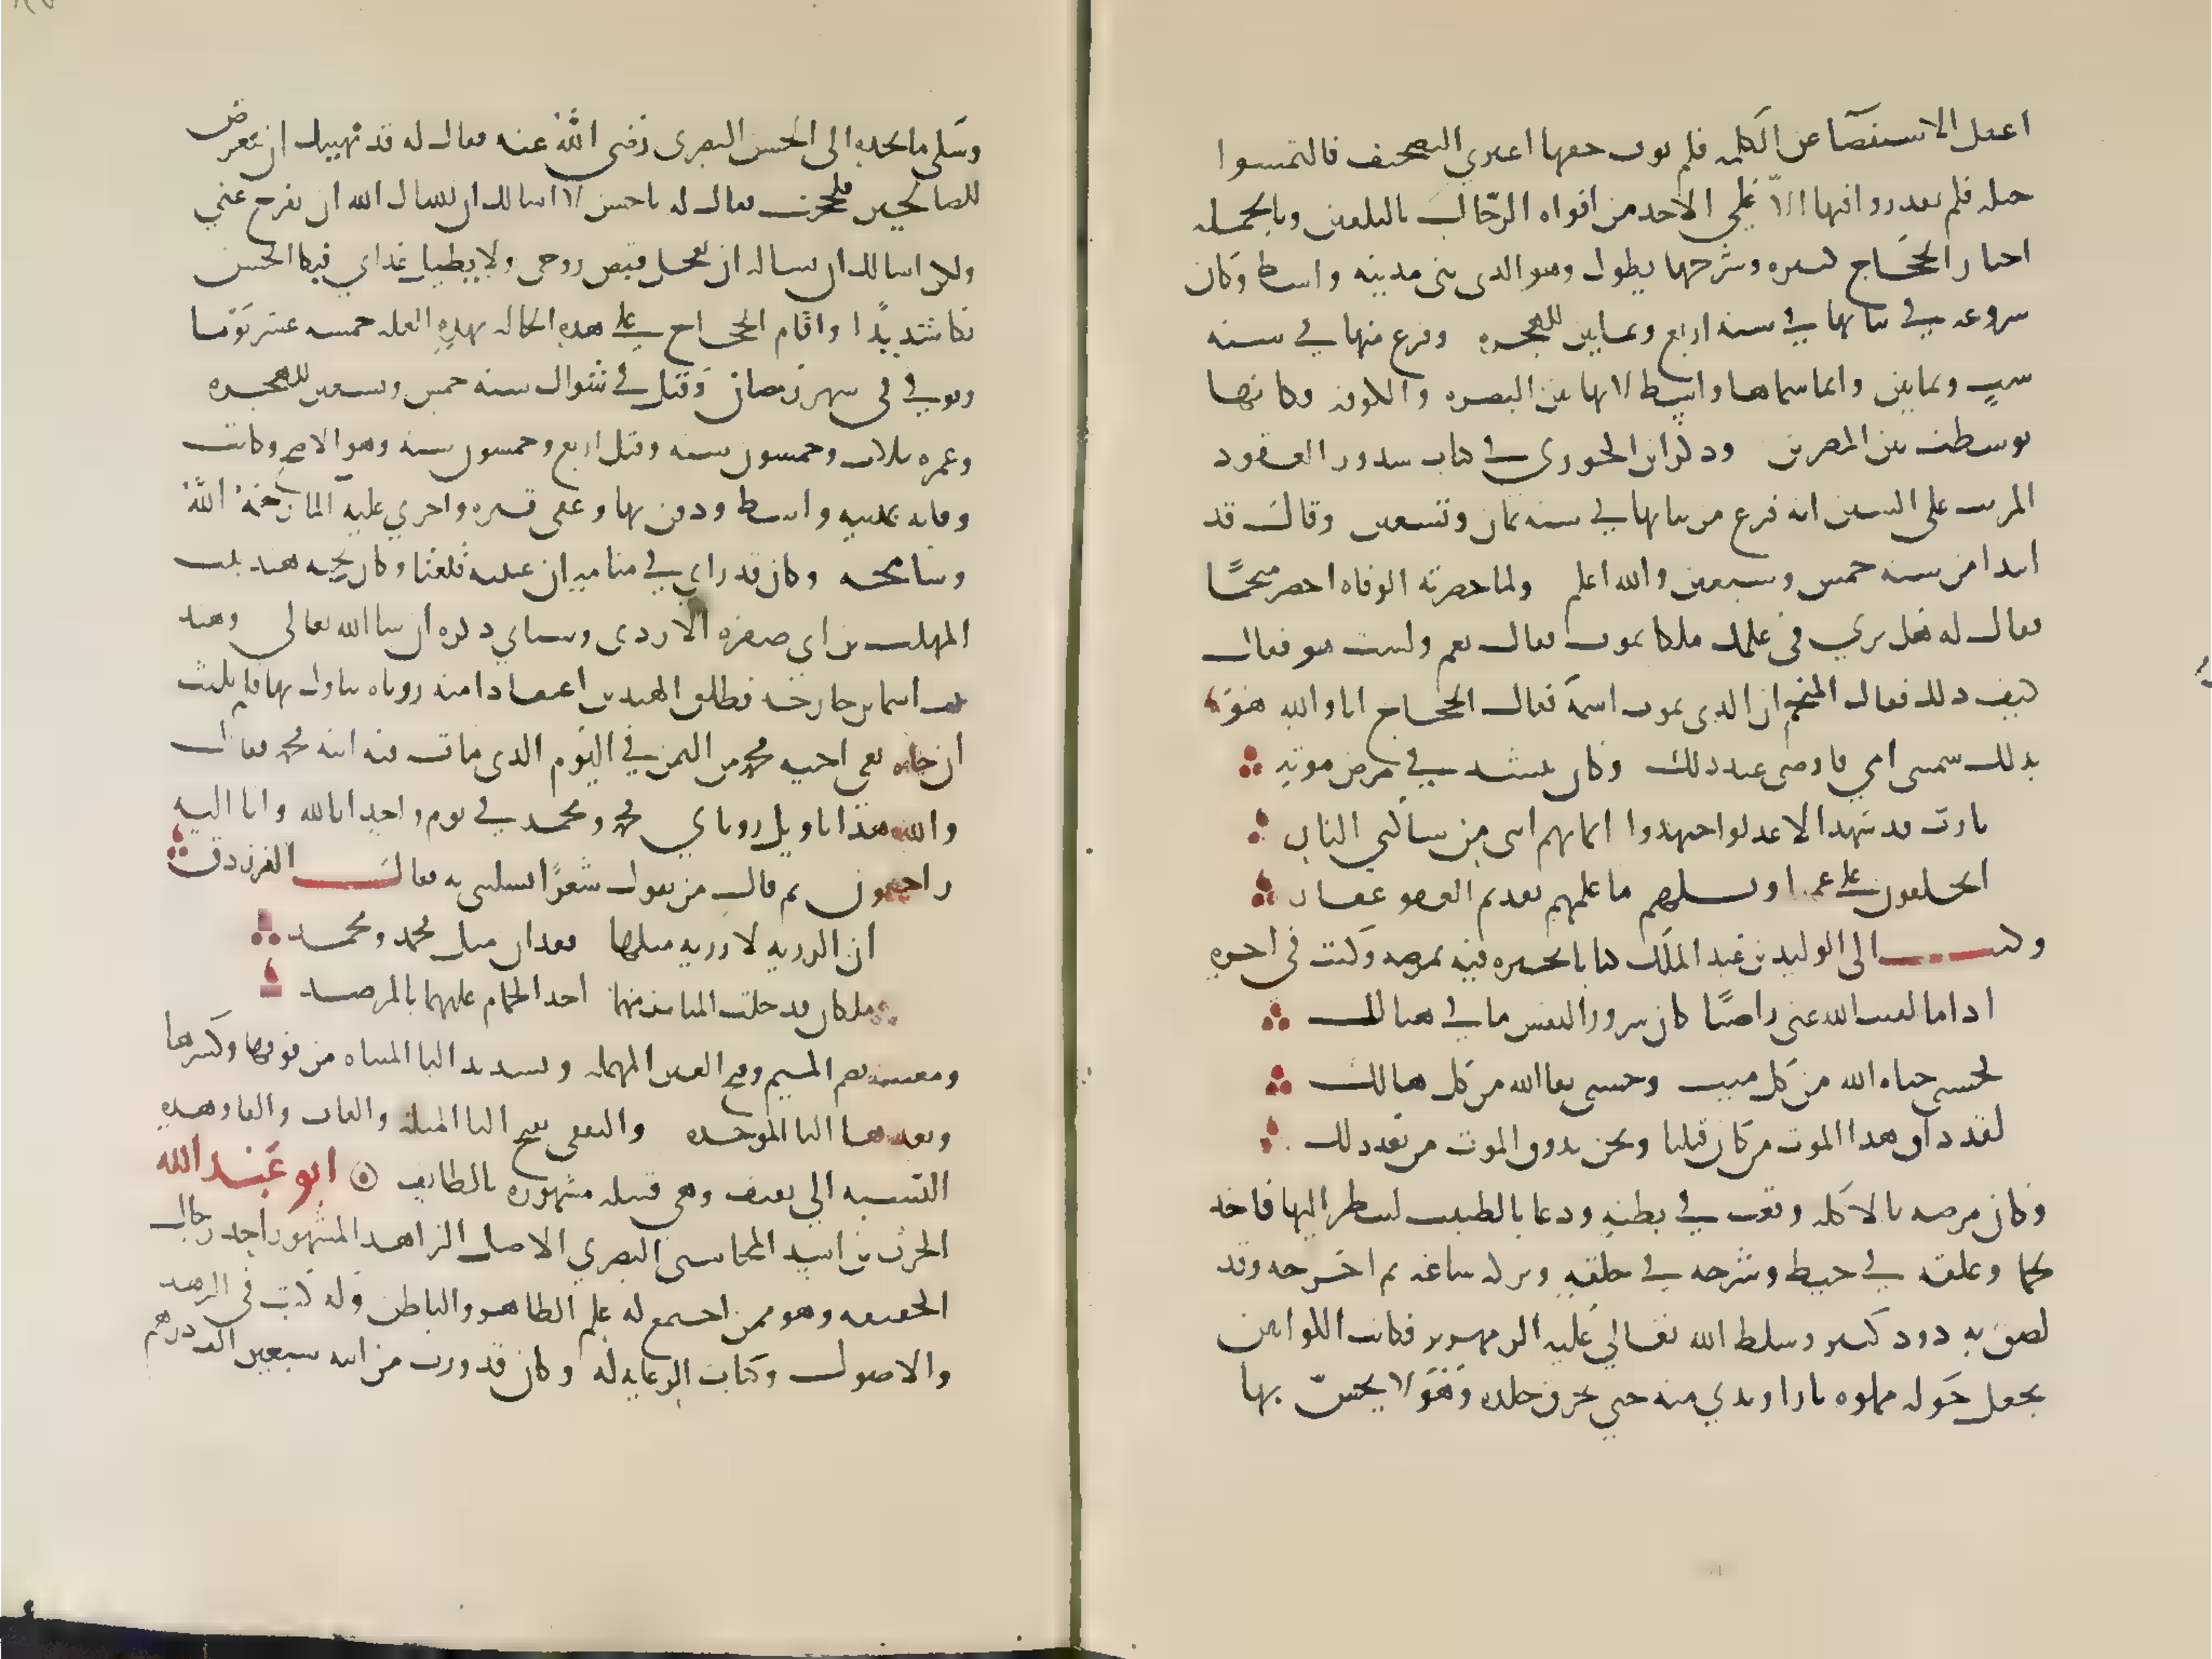 اغفل الاستقصآ عن الكلمه فلم توف حقها اعترى التصحيف فالتمسوا
حيله فلم يقدروا فيها الا على الاخد من افواه الرجال بالتلقين وبالجمله
اخبار الحجاج كثيره وشرحها يطول وهو الدى بنى مدينه واسط وكان
شروعه في بنايها في سنه اربع وثمانين للهجره وفرغ منها في سنه
ست وثمانين وانما سماها واسط لانها بين البصره والكوفه فكانها
توسطت بين المصرين ودكر ابن الجوزى في كتاب شدور العقود
المرتب على السنين انه فرغ من بنايها في سنه ثمان وتسعين وقال قد
ابتدا من سنه خمس وسبعين والله اعلم ولما حضرته الوفاه احضر منجمًا
فقال له هل ترى فى علمك ملكا يموت فقال نعم ولست هو فقال
كيف دلك فقال المنجم ان الدى يموت اسمه فقال الحجاج انا والله هو
بدلك سمتنى امي فاوصى عند دلك وكان ينشد في مرض موته
يا رب قد شهد الاعدا واجتهدوا ايمانهم اننى من ساكني النار
ايحلفون على عميا ويلهم ما علمهم بعديم العفو غفار
وكتب الى الوليد بن عبد الملك كتابا يخبره فيه بمرضه وكتب فى اخره
ادا ما لقيت الله عنى راضيًا فان سرور النفس ما في هنالك
فحسبي حياه الله من كل ميت وحسبى بقا الله من كل هالك
لقد داق هدا الموت من كان قبلنا ونحن ندوق الموت من بعد دلك
وكان مرضه بالاكله وقعت في بطنه ودعا بالطبيب لينظر اليها فاخد
لحما وعلقه في خيط وشرحه في حلقه وتركه ساعه ثم اخرجه وقد
لصق به دود كثير وسلط الله تعالي عليه الزمهرير فكانت الكوانين
تجعل حوله مملوه نارا وتدني منه حتي تحرق جلده وهو لا يحس بها
وشكى ما يجده الى الحسن البصرى رضى الله عنه فقال له قد نهيتك ان تتعرض
للصالحين فلججت فقال له يا حسن لا اسالك ان تسال الله ان يفرج عني
ولكن اسالك ان تساله ان يعجل قبض روحى ولا يطيل عدابي فبكا الحسن
بكا شديدًا واقام الحجاج على هده الحاله بهده العله خمسه عشر يومًا
وتوفي فى شهر رمضان وقيل في شوال سنه خمس وتسعين للهجره
وعمره ثلاث وخمسون سنه وقيل اربع وخمسون سنه وهو الاصح وكانت
وفاته بمدينه واسط ودفن بها وعفى قبره واجري عليه الما رحمه الله
وسامحه وكان قد راي في منامه ان عينيه قلعتا وكان تحته هند بنت
المهلب بن ابي صفره الازدى وسياتي دكره ان شا الله تعالى وهند
بنت اسما بن خارجه فطلق الهندين اعتقادا منه روياه تتاول بهما فلم يلبث
ان جاه نعى اخيه محمد من اليمن في اليوم الدى مات فيه ابنه محمد فقال
والله هدا تاويل روياي محمد ومحمد في يوم واحد انا لله وانا اليه
راجعون ثم قال من يقول شعرًا يسليني به فقال الفرزدق
ان الرزيه لا رزيه مثلها فقدان مثل محمد ومحمد
ملكان قد خلت المنابر منهما اخد الحمام عليهما بالمرصد
ومعتب بضم الميم وفتح العين المهمله وتشديد التا المثناه من فوقها وكسرها
وبعدها البا الموحده والثقفى بفتح الثا المثلثه والقاف والفا وهده
النسبه الي ثقيف وهى قبيله مشهوره بالطايف ابو عبد الله
الحرث بن اسد المحاسبى البصري الاصل الزاهد المشهور احد رجال
الحقيقه وهو ممن اجتمع له علم الظاهر والباطن وله كتب فى الزهد
والاصول وكتاب الرعايه له وكان قد ورث من ابيه سبعين الف درهم